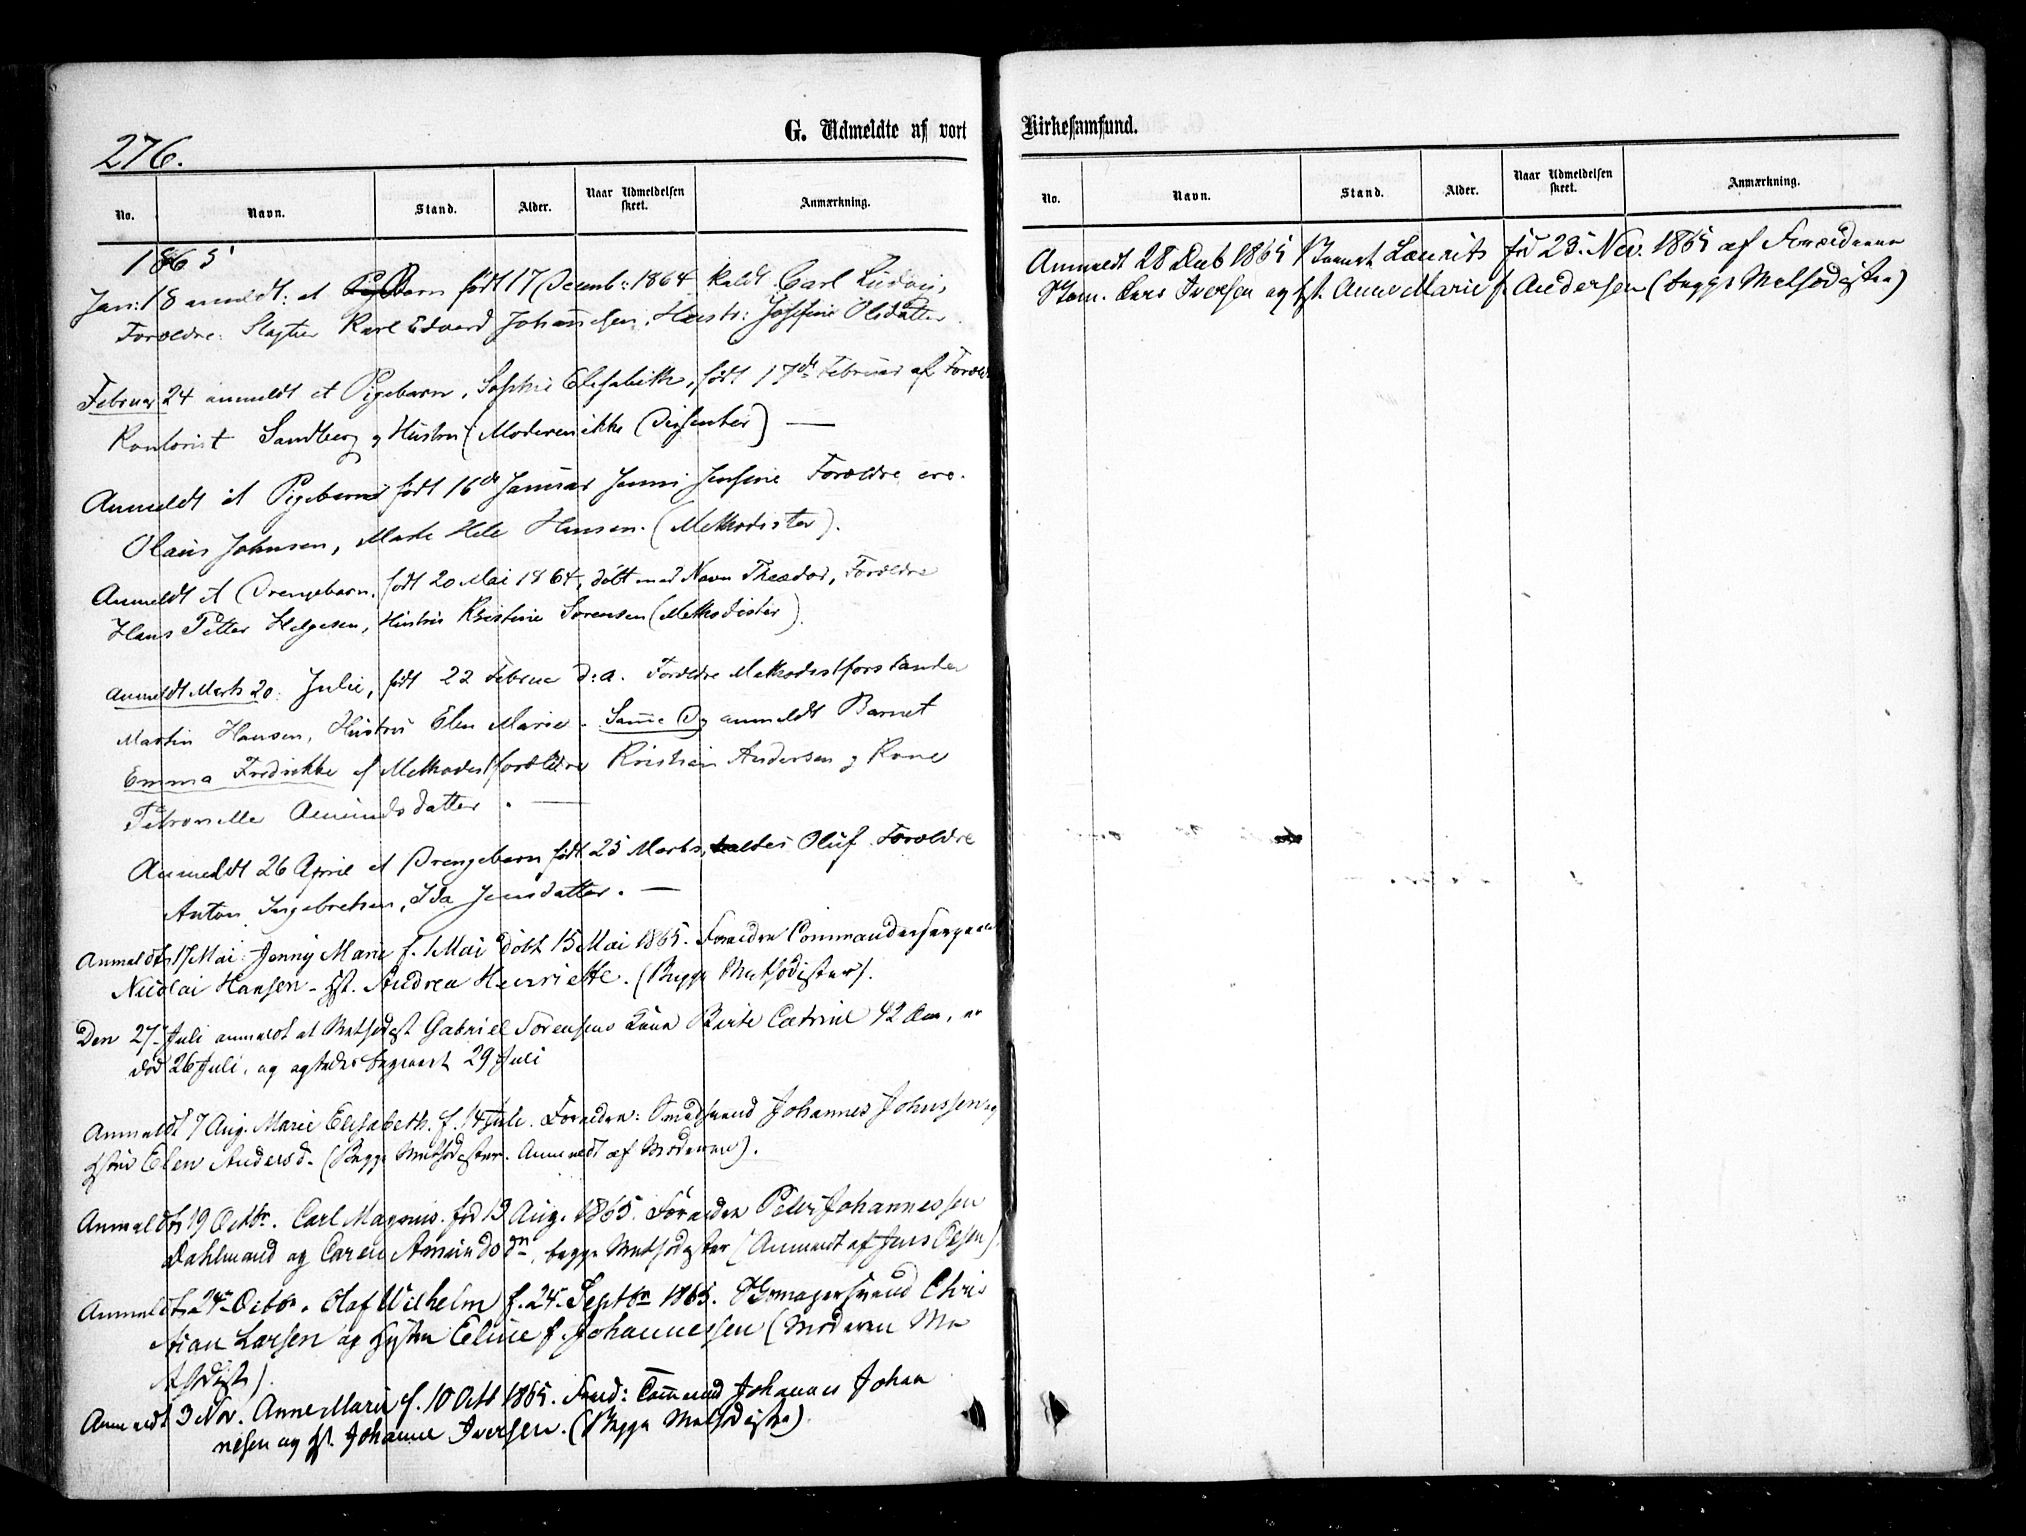 276.
G. Udmeldte af vort
No. Navn. Stand. Alder. Naar Udmeldelsen skeet. Anmærkning.
1865
Jan: 18 anmeldt: et Barn født 17 Decemb: 1864 kaldt Carl Ludvig,
Forældre: Slagter Karl Edvard Johannesen, Hustr: Josefine Olsdatter
Februar 24 anmeldt et Pigebarn, Sophie Elisabeth, født 17de Februar af Foræld
Kontorist Sandberg g Hustru (Moderen ikke Dissenter) —
Anmeldt et Pigebarn født 16de Januar Jenni Josefine Forældre ere
Olaus Johnsen, Marte Hansen. (Methodister).
Anmeldt et Drengebarn, født 20 Mai 1864, døbt med Navn Theodor, Forældre
Hans Petter Helgesen, Hustru Kristine Sørensen (Methodister)
anmeldt Marts 20. Julie, født 22 Februar d: a. Forældre Methodistforstander
Martin Hansen, Hustru Elen Marie. Samme Dg anmeldt Barnet
Emma Fredrikke af Methodistforældre Kristian Andersen g Kone
Petronelle Amundsdatter . —
Anmeldt 26 April et Drengebarn født 25 Marts, kaldes Oluf Forældre
Anton Ingebretsen, Ida Jensdatter. —
Anmeldt 17 Mai Jenny Marie f. 1 Mai døbt 15 Mai 1865. Forældre Commandersergeant
Nicolai Hansen - Hst. Andrea Henriette. (Begge Methodister).
Den 27 Juli anmeldt at Methodist Gabriel Sørensens Kone Berte Catrine 42 Aar, er
død 26 Juli, og agtedes begravet 29 Juli
Anmeldt 7 Aug. Marie Elisabeth. f. 14 Juli. Forældre: Smedsvend Johannes Johnssen og
Hstru Elen Andersd. (Begge Methodister. Anmeldt af Moderen).
Anmeldt 19 Octbr. Carl Magnus. fød 13 Aug. 1865. Forældre Peter Johannessen
Dahlmand og Caren Amundsdn, begge Methodister (Anmeldt af Jens Olsen)
Anmeldt 24 Octbr. Olaf Wilhelm f. 24 Septbr 1865. Skomagersvend Chris
tian Larsen og Hustru Eline f. Johannessen (Moderen Me
thodist).
Anmeldt 3 Nov. Anne Marie f. 10 Octb 1865. Foræld: Johannes Johan
nesen og Hst. Johanne Iversen. (Begge Methodister).
Kirkesamfund.
No. Navn. Stand. Alder. Naar Udmeldelsen skeet. Anmærkning.
Anmeldt 28 Decb 1865 Barnet Laurits fød 23 Nov. 1865 af Forældrene
Skom. Lars Iversen og Hst. Anne Marie f. Andersen (begge Methodister)